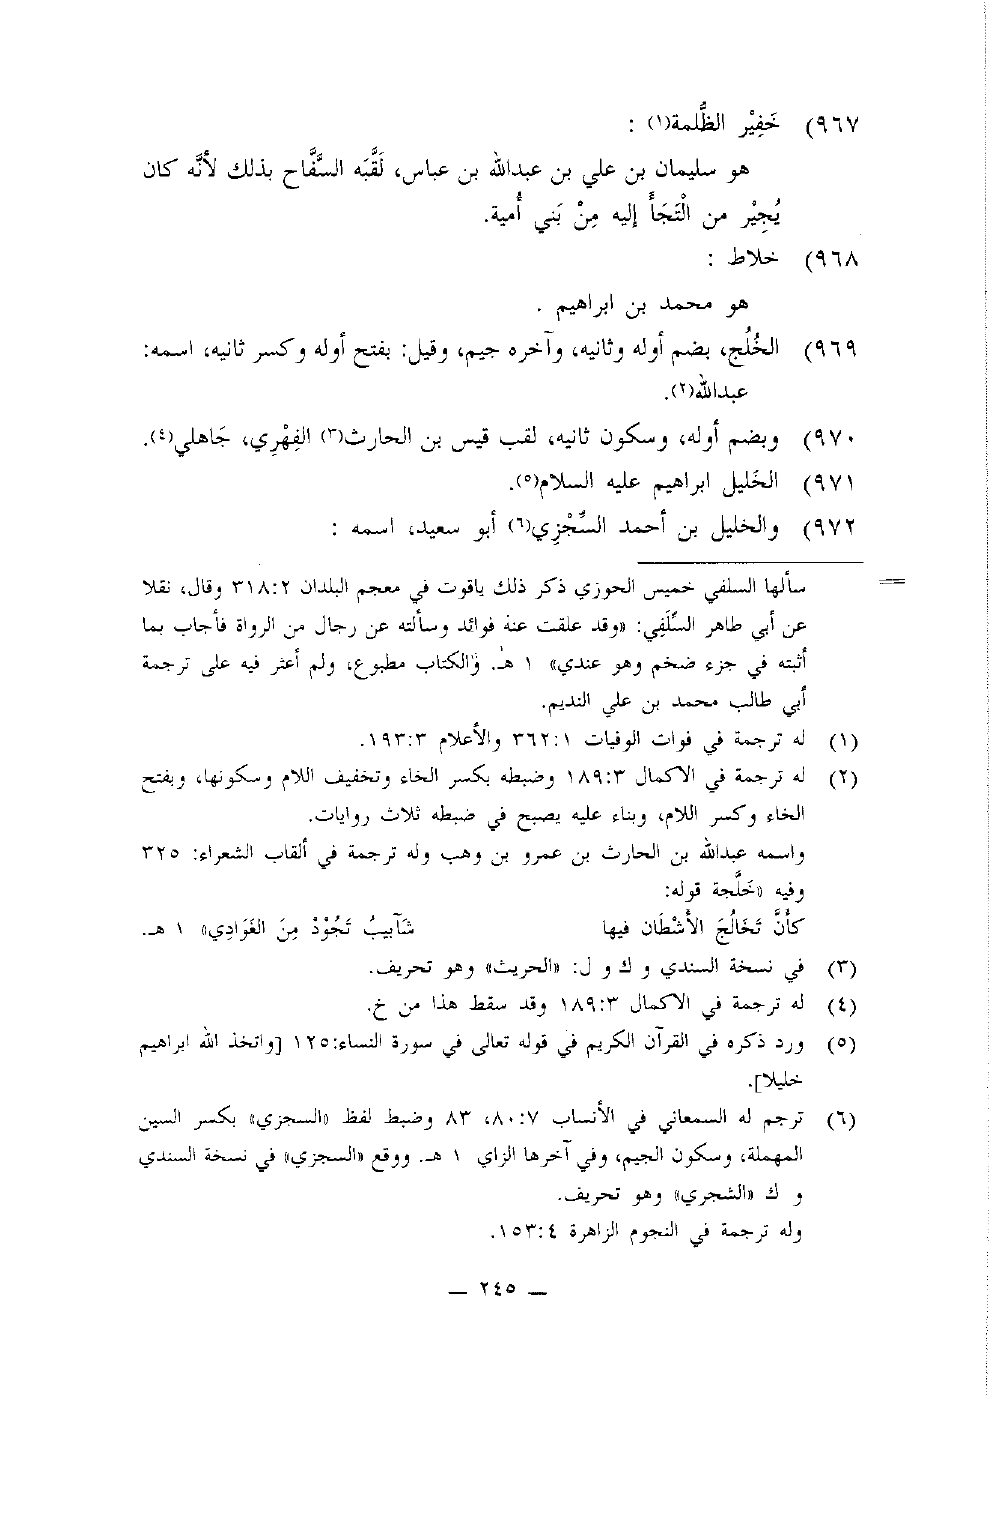 ٩٦٧) خَفِيْر الظُّلمة(١) :
هو سليمان بن علي بن عبدالله بن عباس، لَقَّبَه السَّفَّاح بذلك لأنَّه كان
يُجِيْر من الْتَجَأَ إليه مِنْ بَني أُمية.
٩٦٨) خلاط :
هو محمد بن ابراهيم .
٩٦٩) الخُلُج، بضم أوله وثانيه، وآخره جيم، وقيل: بفتح أوله وكسر ثانيه، اسمه:
عبدالله(٢).
٩٧٠) وبضم أوله، وسكون ثانيه، لقب قيس بن الحارث(٣) الفِهْرِي، جَاهلي(٤).
٩٧١) الخَليل ابراهيم عليه السلام(٥).
٩٧٢) والخليل بن أحمد السِّجْزِي(٦) أبو سعيد، اسمه :
= سألها السلفي خميس الحوزي ذكر ذلك ياقوت في معجم البلدان ٣١٨:٢ وقال، نقلا
عن أبي طاهر السِّلَفِي: «وقد علقت عنه فوائد وسألته عن رجال من الرواة فأجاب بما
أثبته في جزء ضخم وهو عندي» ١ هـ. والكتاب مطبوع، ولم أعثر فيه على ترجمة
أبي طالب محمد بن علي النديم.
(١) له ترجمة في فوات الوفيات ٣٦٢:١ والأعلام ١٩٣:٣.
(٢) له ترجمة في الاكمال ١٨٩:٣ وضبطه بكسر الخاء وتخفيف اللام وسكونها، وبفتح
الخاء وكسر اللام، وبناء عليه يصبح في ضبطه ثلاث روايات.
واسمه عبدالله بن الحارث بن عمرو بن وهب وله ترجمة في ألقاب الشعراء: ٣٢٥
وفيه «خَلَّجة قوله:
كأنَّ تَخَالُجَ الأشْطَان فيها شَآبيبُ تَجُوْدُ مِنَ الغَوَادِي» ١ هـ.
(٣) في نسخة السندي و ك و ل: «الحريث» وهو تحريف.
(٤) له ترجمة في الاكمال ١٨٩:٣ وقد سقط هذا من خ.
(٥) ورد ذكره في القرآن الكريم في قوله تعالى في سورة النساء:١٢٥ [واتخذ الله ابراهيم
خليلا].
(٦) ترجم له السمعاني في الأنساب ٨٠:٧، ٨٣ وضبط لفظ «السجزي» بكسر السين
المهملة، وسكون الجيم، وفي آخرها الزاي ١ هـ. ووقع «السجزي» في نسخة السندي
و ك «الشجري» وهو تحريف.
وله ترجمة في النجوم الزاهرة ١٥٣:٤.
— ٢٤٥ —